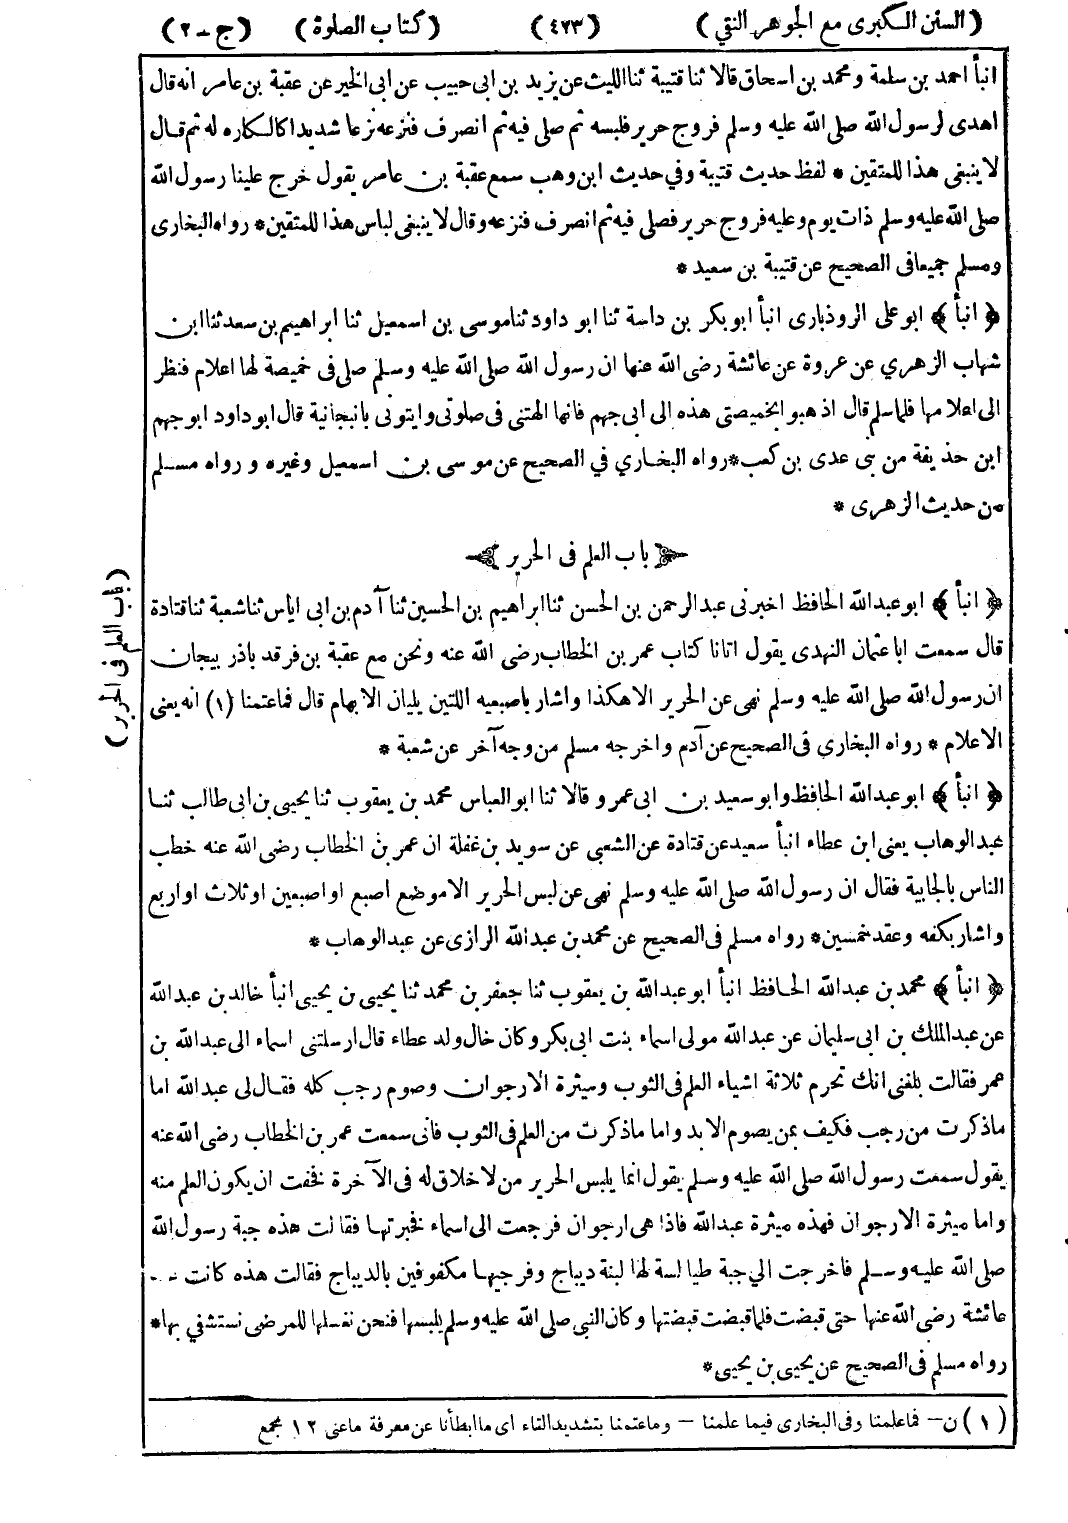 (السنن الكبرى مع الجوهر النقي) (٤٢٣) (كتاب الصلوة) (ج-٢)
انبأ احمد بن سلمة ومحمد بن اسحاق قالا ثنا قتيبة ثنا الليث عن يزيد بن ابى حبيب عن ابى الخير عن عقبة بن عامر انه قال
اهدى لرسول الله صلى الله عليه وسلم فروج حرير فلبسه ثم صلى فيه ثم انصرف فنزعه نزعا شديدا كالكاره له ثم قال
لا ينبغى هذا للمتقين * لفظ حديث قتيبة وفي حديث ابن وهب سمع عقبة بن عامر يقول خرج علينا رسول الله
صلى الله عليه وسلم ذات يوم وعليه فروج حرير فصلى فيه ثم انصرف فنزعه وقال لا ينبغى لباس هذا للمتقين* رواه البخارى
ومسلم جميعا فى الصحيح عن قتيبة بن سعيد *
﴿ انبأ ﴾ ابو على الروذبارى انبأ ابو بكر بن داسة ثنا ابو داود ثنا موسى بن اسمعيل ثنا ابراهيم بن سعد ثنا ابن
شهاب الزهري عن عروة عن عائشة رضى الله عنها ان رسول الله صلى الله عليه وسلم صلى فى خميصة لها اعلام فنظر
الى اعلامها فلما سلم قال اذهبوا بخميصتى هذه الى ابى جهم فانها الهتنى فى صلوتى وايتونى بانبجانية قال ابو داود ابو جهم
ابن حذيفة من بنى عدى بن كعب*رواه البخاري في الصحيح عن موسى بن اسمعيل وغيره ورواه مسلم
من حديث الزهرى *
باب العلم فى الحرير
﴿ انبأ ﴾ ابو عبدالله الحافظ اخبرنى عبدالرحمن بن الحسن ثنا ابراهيم بن الحسين ثنا آدم بن ابى اياس ثنا شعبة ثنا قتادة
قال سمعت ابا عثمان النهدى يقول اتانا كتاب عمر بن الخطاب رضى الله عنه ونحن مع عقبة بن فرقد باذر بيجان
ان رسول الله صلى الله عليه وسلم نهى عن الحرير الا هكذا واشار باصبعيه اللتين يليان الابهام قال فما عتمنا (١) انه يعنى
الاعلام * رواه البخارى فى الصحيح عن آدم واخرجه مسلم من وجه آخر عن شعبة *
﴿ انبأ ﴾ ابو عبدالله الحافظ وابو سعيد بن ابى عمرو قالا ثنا ابو العباس محمد بن يعقوب ثنا يحيى بن ابى طالب ثنا
عبدالوهاب يعنى ابن عطاء انبأ سعيد عن قتادة عن الشعبى عن سويد بن غفلة ان عمر بن الخطاب رضى الله عنه خطب
الناس بالجابية فقال ان رسول الله صلى الله عليه وسلم نهى عن لبس الحرير الا موضع اصبع او اصبعين او ثلاث او اربع
واشار بكفه وعقد خمسين* رواه مسلم فى الصحيح عن محمد بن عبدالله الرازى عن عبدالوهاب *
﴿ انبأ ﴾ محمد بن عبدالله الحافظ انبأ ابو عبدالله بن يعقوب ثنا جعفر بن محمد ثنا يحيى بن يحيى انبأ خالد بن عبدالله
عن عبدالملك بن ابى سليمان عن عبدالله مولى اسماء بنت ابى بكر وكان خال ولد عطاء قال ارسلتنى اسماء الى عبدالله بن
عمر فقالت بلغنى انك تحرم ثلاثة اشياء العلم فى الثوب وميثرة الارجوان وصوم رجب كله فقال لى عبدالله اما
ما ذكرت من رجب فكيف بمن يصوم الابد واما ما ذكرت من العلم فى الثوب فانى سمعت عمر بن الخطاب رضى الله عنه
يقول سمعت رسول الله صلى الله عليه وسلم يقول انما يلبس الحرير من لا خلاق له فى الآخرة فخفت ان يكون العلم منه
واما ميثرة الارجوان فهذه ميثرة عبدالله فاذا هى ارجوان فرجعت الى اسماء فخبرتها فقالت هذه جبة رسول الله
صلى الله عليه وسلم فاخرجت الي جبة طيالسة لها لبنة ديباج وفرجيها مكفوفين بالديباج فقالت هذه كانت --
عائشة رضى الله عنها حتى قبضت فلما قبضت قبضتها وكان النبى صلى الله عليه وسلم يلبسها فنحن نغسلها للمرضى نستشفي بها*
رواه مسلم فى الصحيح عن يحيى بن يحيى*
(باب العلم فى الحرير)
(١) ن- فما علمنا وفى البخارى فيما علمنا - وما عتمنا بتشديد التاء اى ما ابطأنا عن معرفة ما عنى ١٢ مجمع